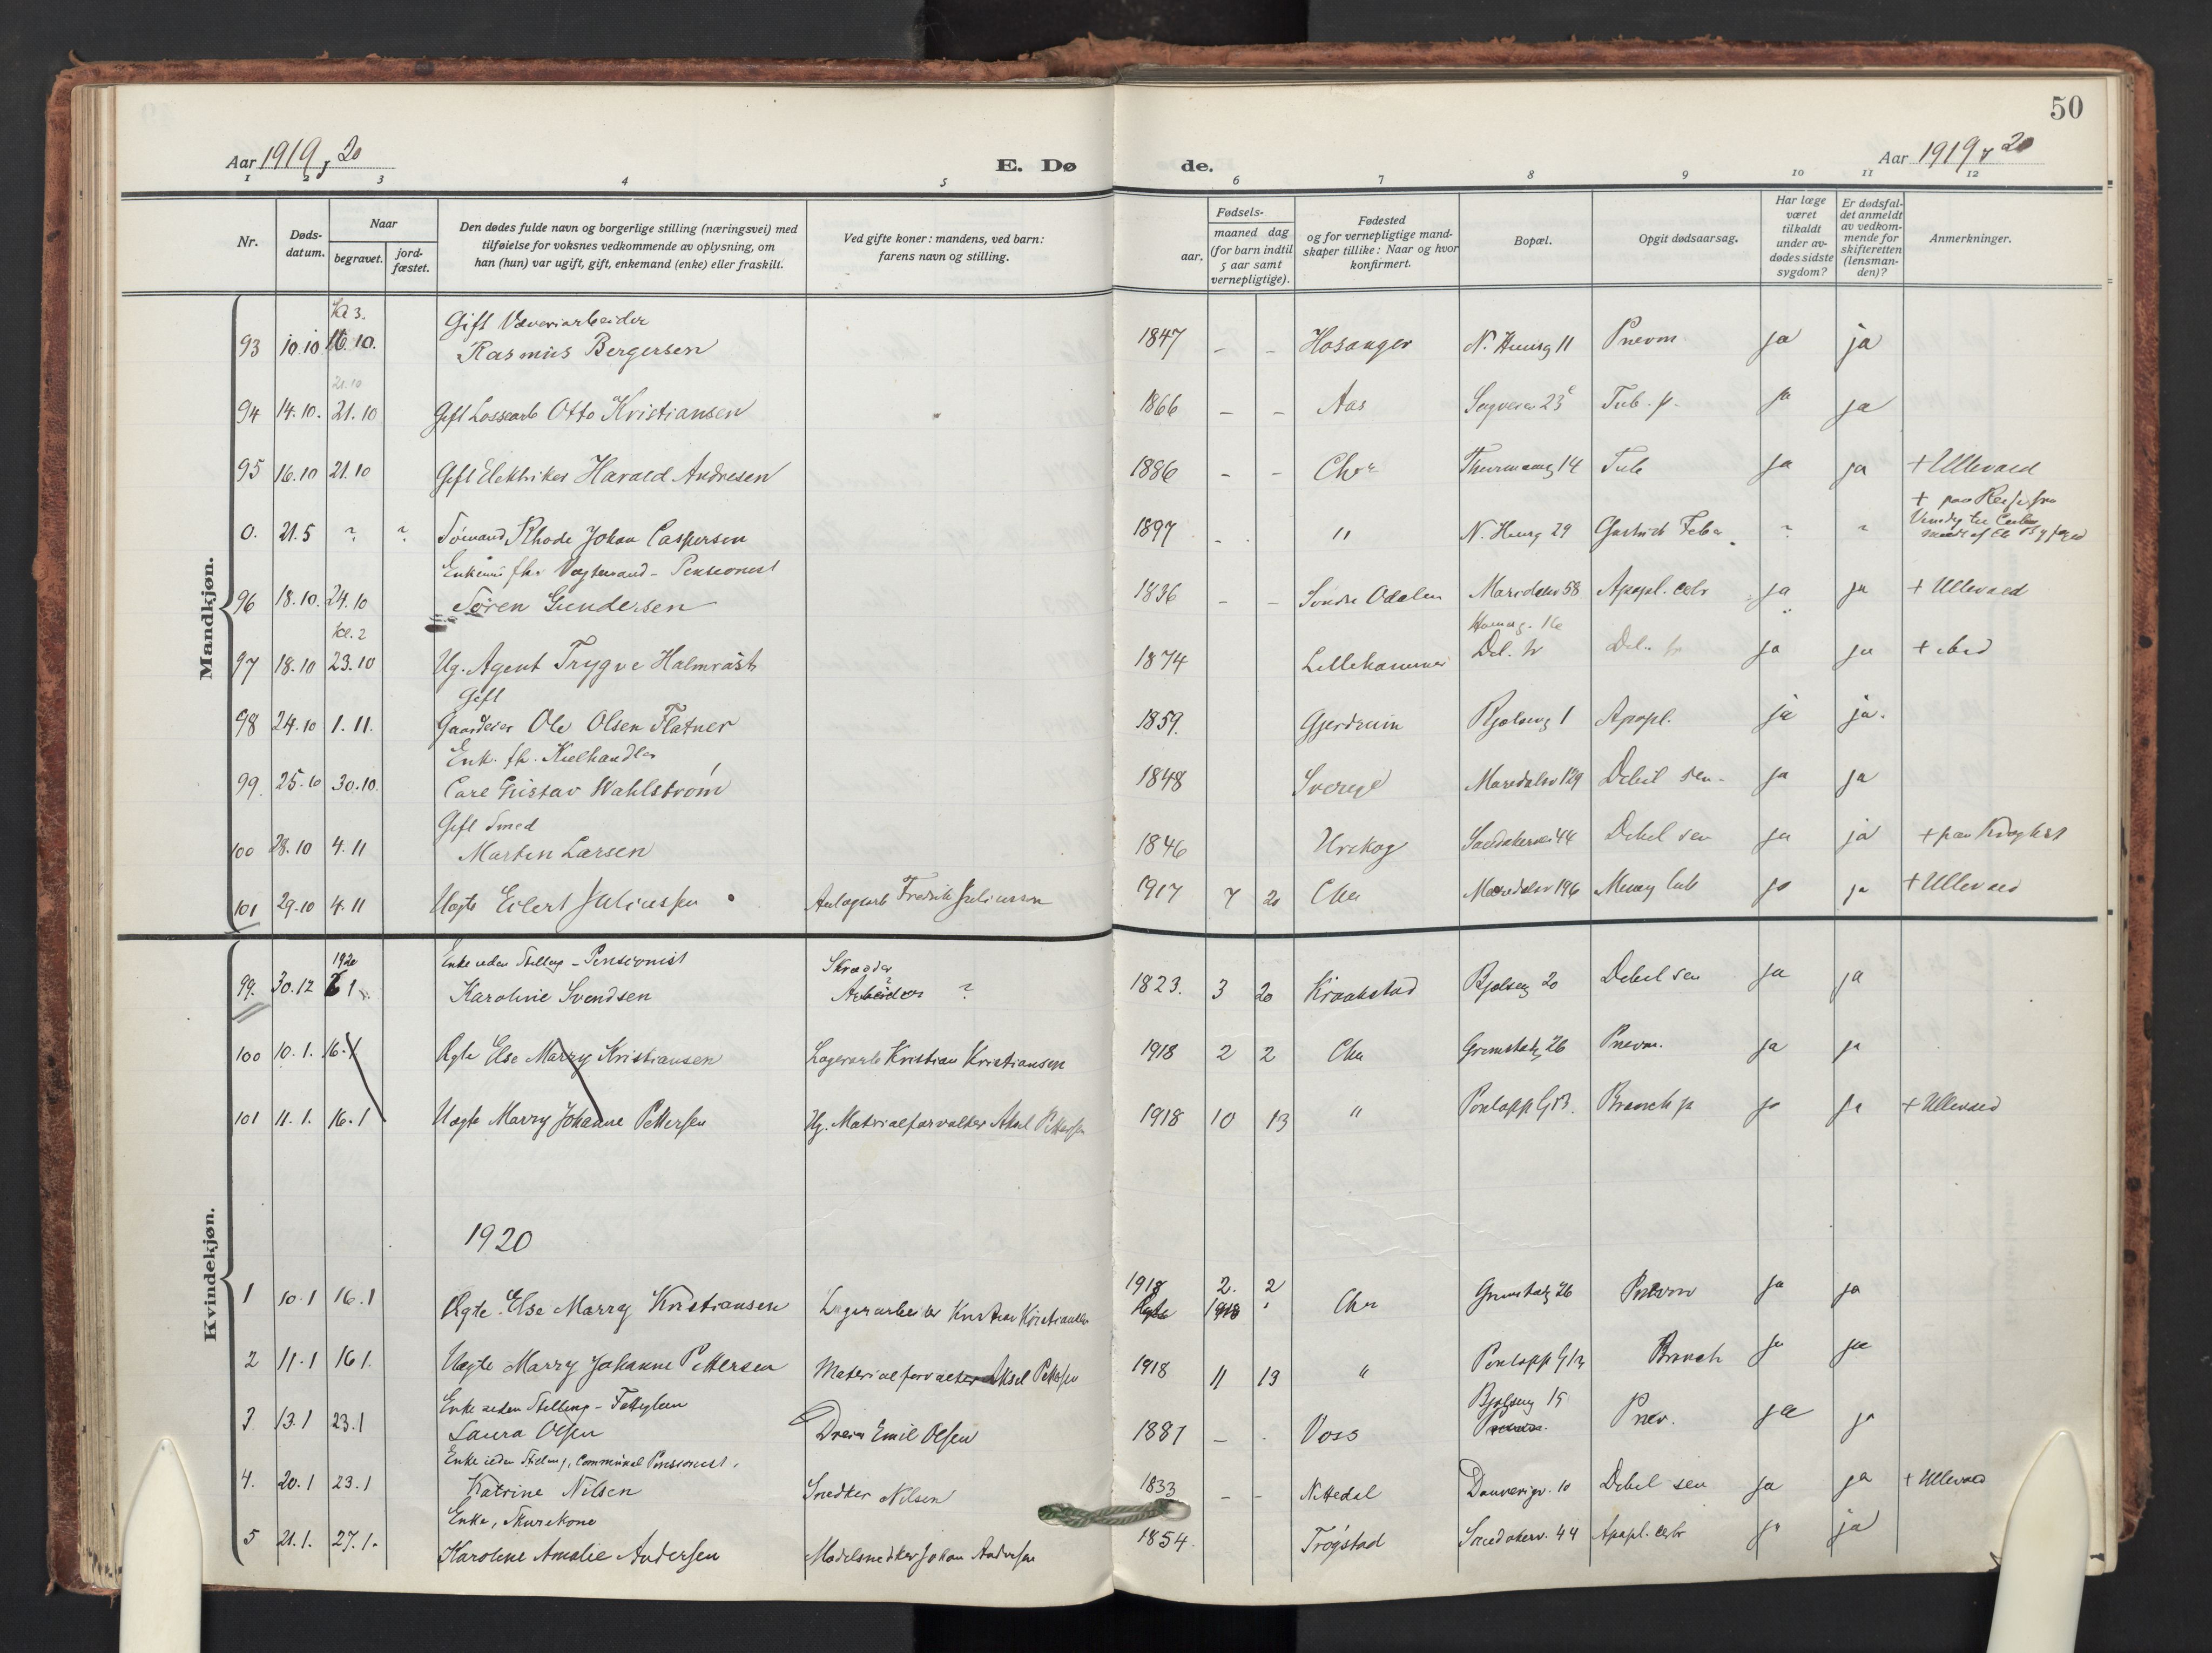 50
Aar 1919, 20 E. Dø de. Aar 1919, 20
1 2 3 4 5 6 7 8 9 10 11 12
Nr. Døds-datum. Naar begravet. jord-fæstet. Den dødes fulde navn og borgerlige stilling (næringsvei) med tilføielse for voksnes vedkommende av oplysning, om han (hun) var ugift, gift, enkemand (enke) eller fraskilt. Ved gifte koner: mandens, ved barn: farens navn og stilling. Fødsels- aar. maaned dag (for barn indtil 5 aar samt vernepligtige). Fødested og for vernepligtige mandskaper tillike: Naar og hvor konfirmert. Bopæl. Opgit dødsaarsag. Har læge været tilkaldt under avdødes sidste sygdom? Er dødsfaldet anmeldt av vedkommende for skifteretten (lensmanden)? Anmerkninger.
Mandkjøn.
Kl 3. Gift Væveriarbeider
93 10.10 16.10. Rasmus Bergersen 1847 - - Hosanger 11 Pnevm ja ja
21.10
94 14.10. 21.10 Gift Lossearb Otto Kristiansen 1866 - - Aas Sagveien 23 Tub. p. ja ja
95 16.10 21.10 Gift Elektriker Harald Andresen 1886 - - Chra 14 Tub ja ja + Ullevaal
+ paa Reise fra
0. 21.5 ? ? Sømand Rhode Johan Caspersen 1897 - " 29 ? ?
Enkem fhv Vægtermand - Pensionist
96 18.10. 24.10 Søren Gundersen 1836 - - Søndre Odalen Maridalsv 58 Apopl. cebr ja ja + Ullevaal
Kl. 2 16
97 18.10 23.10 Ug. Agent Trygve Halmrast 1874 Lillehammer Del. tr Del. tr ja ja + ibid
Gift
98 24.10 1.11. Gaardeier Ole Olsen Flatner 1859. Gjerdrum Bjølseng 1 Apopl. ja ja.
Enk. fh. Kulhandler
99. 25.10 30.10. Carl Gustav Wahlstrøm 1848 Sverige Maridalsv 129 Debil sen. ja ja
Gift Smed
100 28.10 4.11 Martin Larsen 1846 Urskog Sandakervei 44 Debil sen ja ja
101 29.10 4.11 Uægte Eilert Juliussen Anlægsarb Fredrik Juliussen 1917 7 20 Chra Maridalsv 196 Mening tub ja ja + Ullevaal
Kvindekjøn.
1920 Enke uden Stilling - Pensionist Skrædder
99. 30.12 1 Karoline Svendsen Arbeider ? 1823. 3 20 Kraakstad Bjølseng 20 Debil sen ja ja
100 10.1. 16.1 Ægte Else Marry Kristiansen Lagerarb Kristian Kristiansen 1918 2 2 Chra Grimstadg 26 Pnevm. ja ja
101 11.1. 16.1 Uægte Marry Johanne Pettersen Ug. Materialforvalter Aksel Pettersen 1918 10 13 " Pontoppg 13. Bronch p ja ja + Ullevaal
1920
1 10.1 16.1 Ægte Else Marry Kristiansen Lagerarbeider Kristian Kristiansen 1918 2. 2 Chra Grimstadg 26 Pnevm ja ja
2 11.1 16.1. Uægte Marry Johanne Pettersen Materialforvalter Aksel Pettersen 1918 11 13 " Pontoppg 13 Bronch ja ja
Enke uden Stilling - Fattiglem Bjølseng 15
3 13.1 23.1 Laura Olsen Dreier Emil Olsen 1881 - - Voss Pnev. ja ja
Enke uden Stilling, Communal Pensionist.
4. 20.1 23.1 Katrine Nilsen Snedker Nilsen 1833 - - Nittedal Dannevigv. 10 Debil sen ja ja + Ullevaal
Enke, Skurekone
5 21.1. 27.1. Karoline Amalie Andersen Modelsnedker Johan Andersen 1854. Trøgstad Sandakerv. 44 Apopl. cerbr ja ja